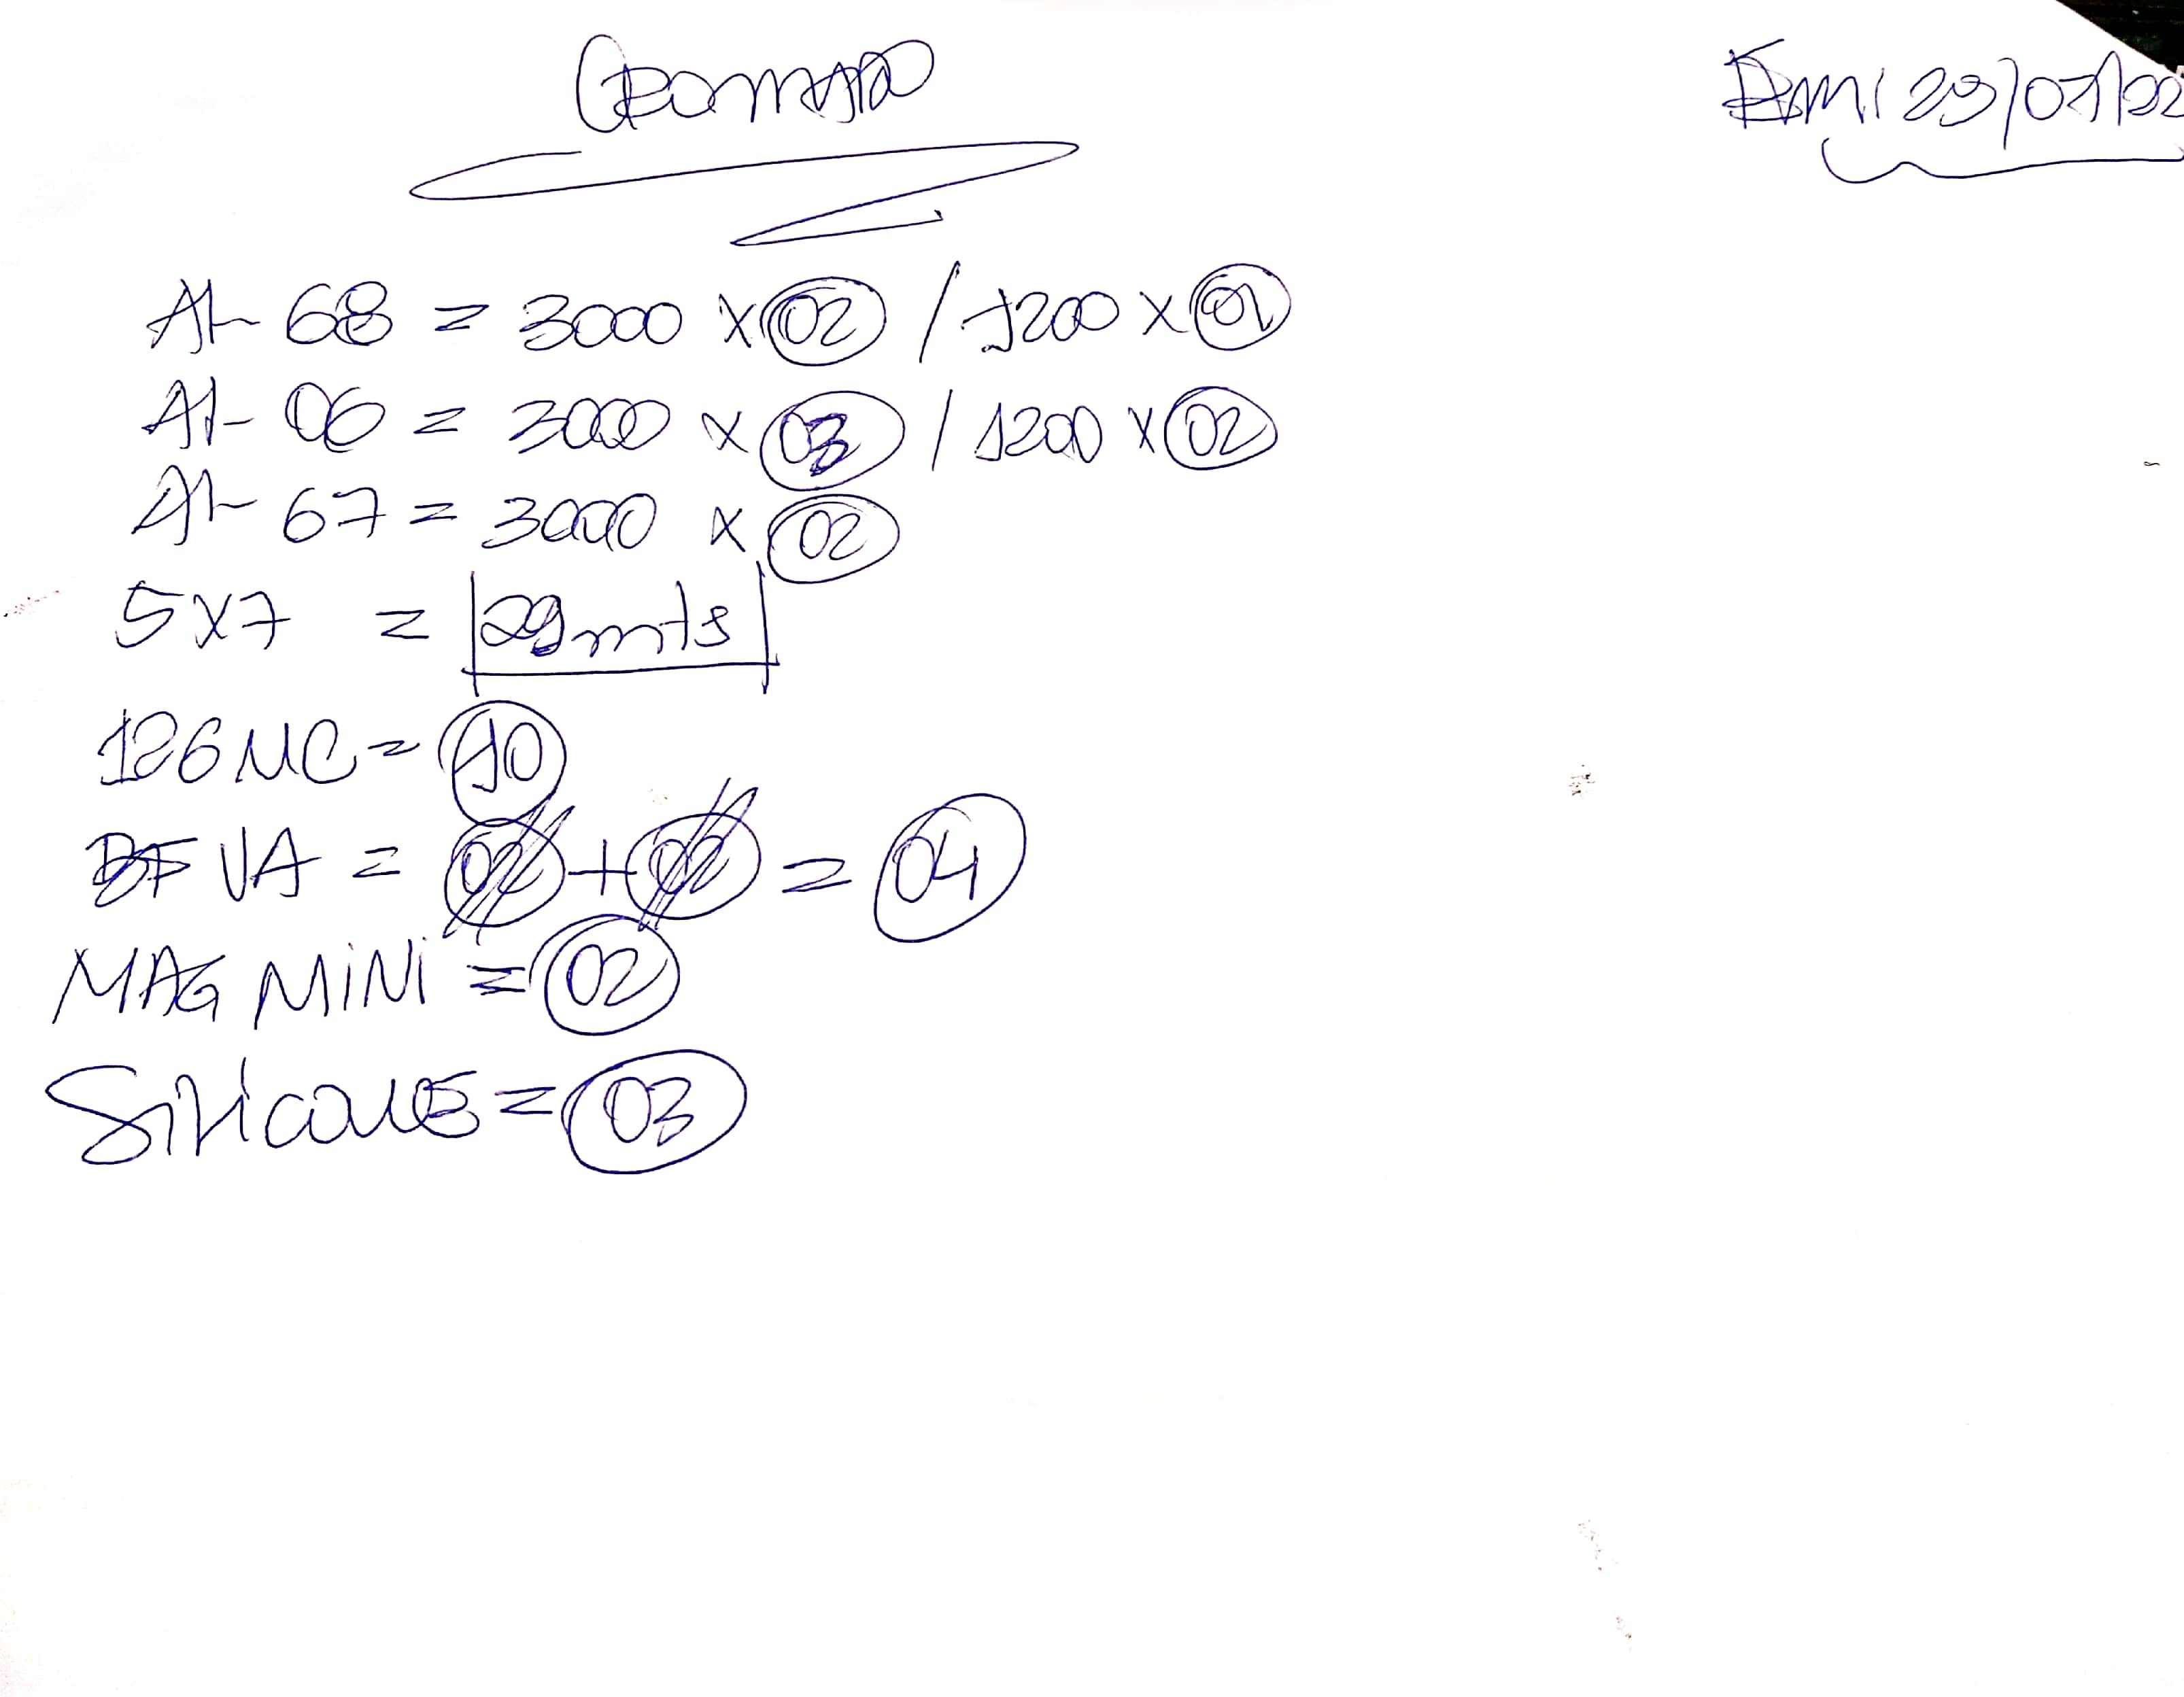 Em: 29/07/22
Al- 68 = 3000 x 02 / 1200 x 01
Al- 06 = 3000 x 03 / 1200 x 02
Al- 67 = 3000 x 02
5x7 = 29mts
186 NC = 10
BF VA = 02 + 02 = 04
MAG MINI = 02
Silicone = 03